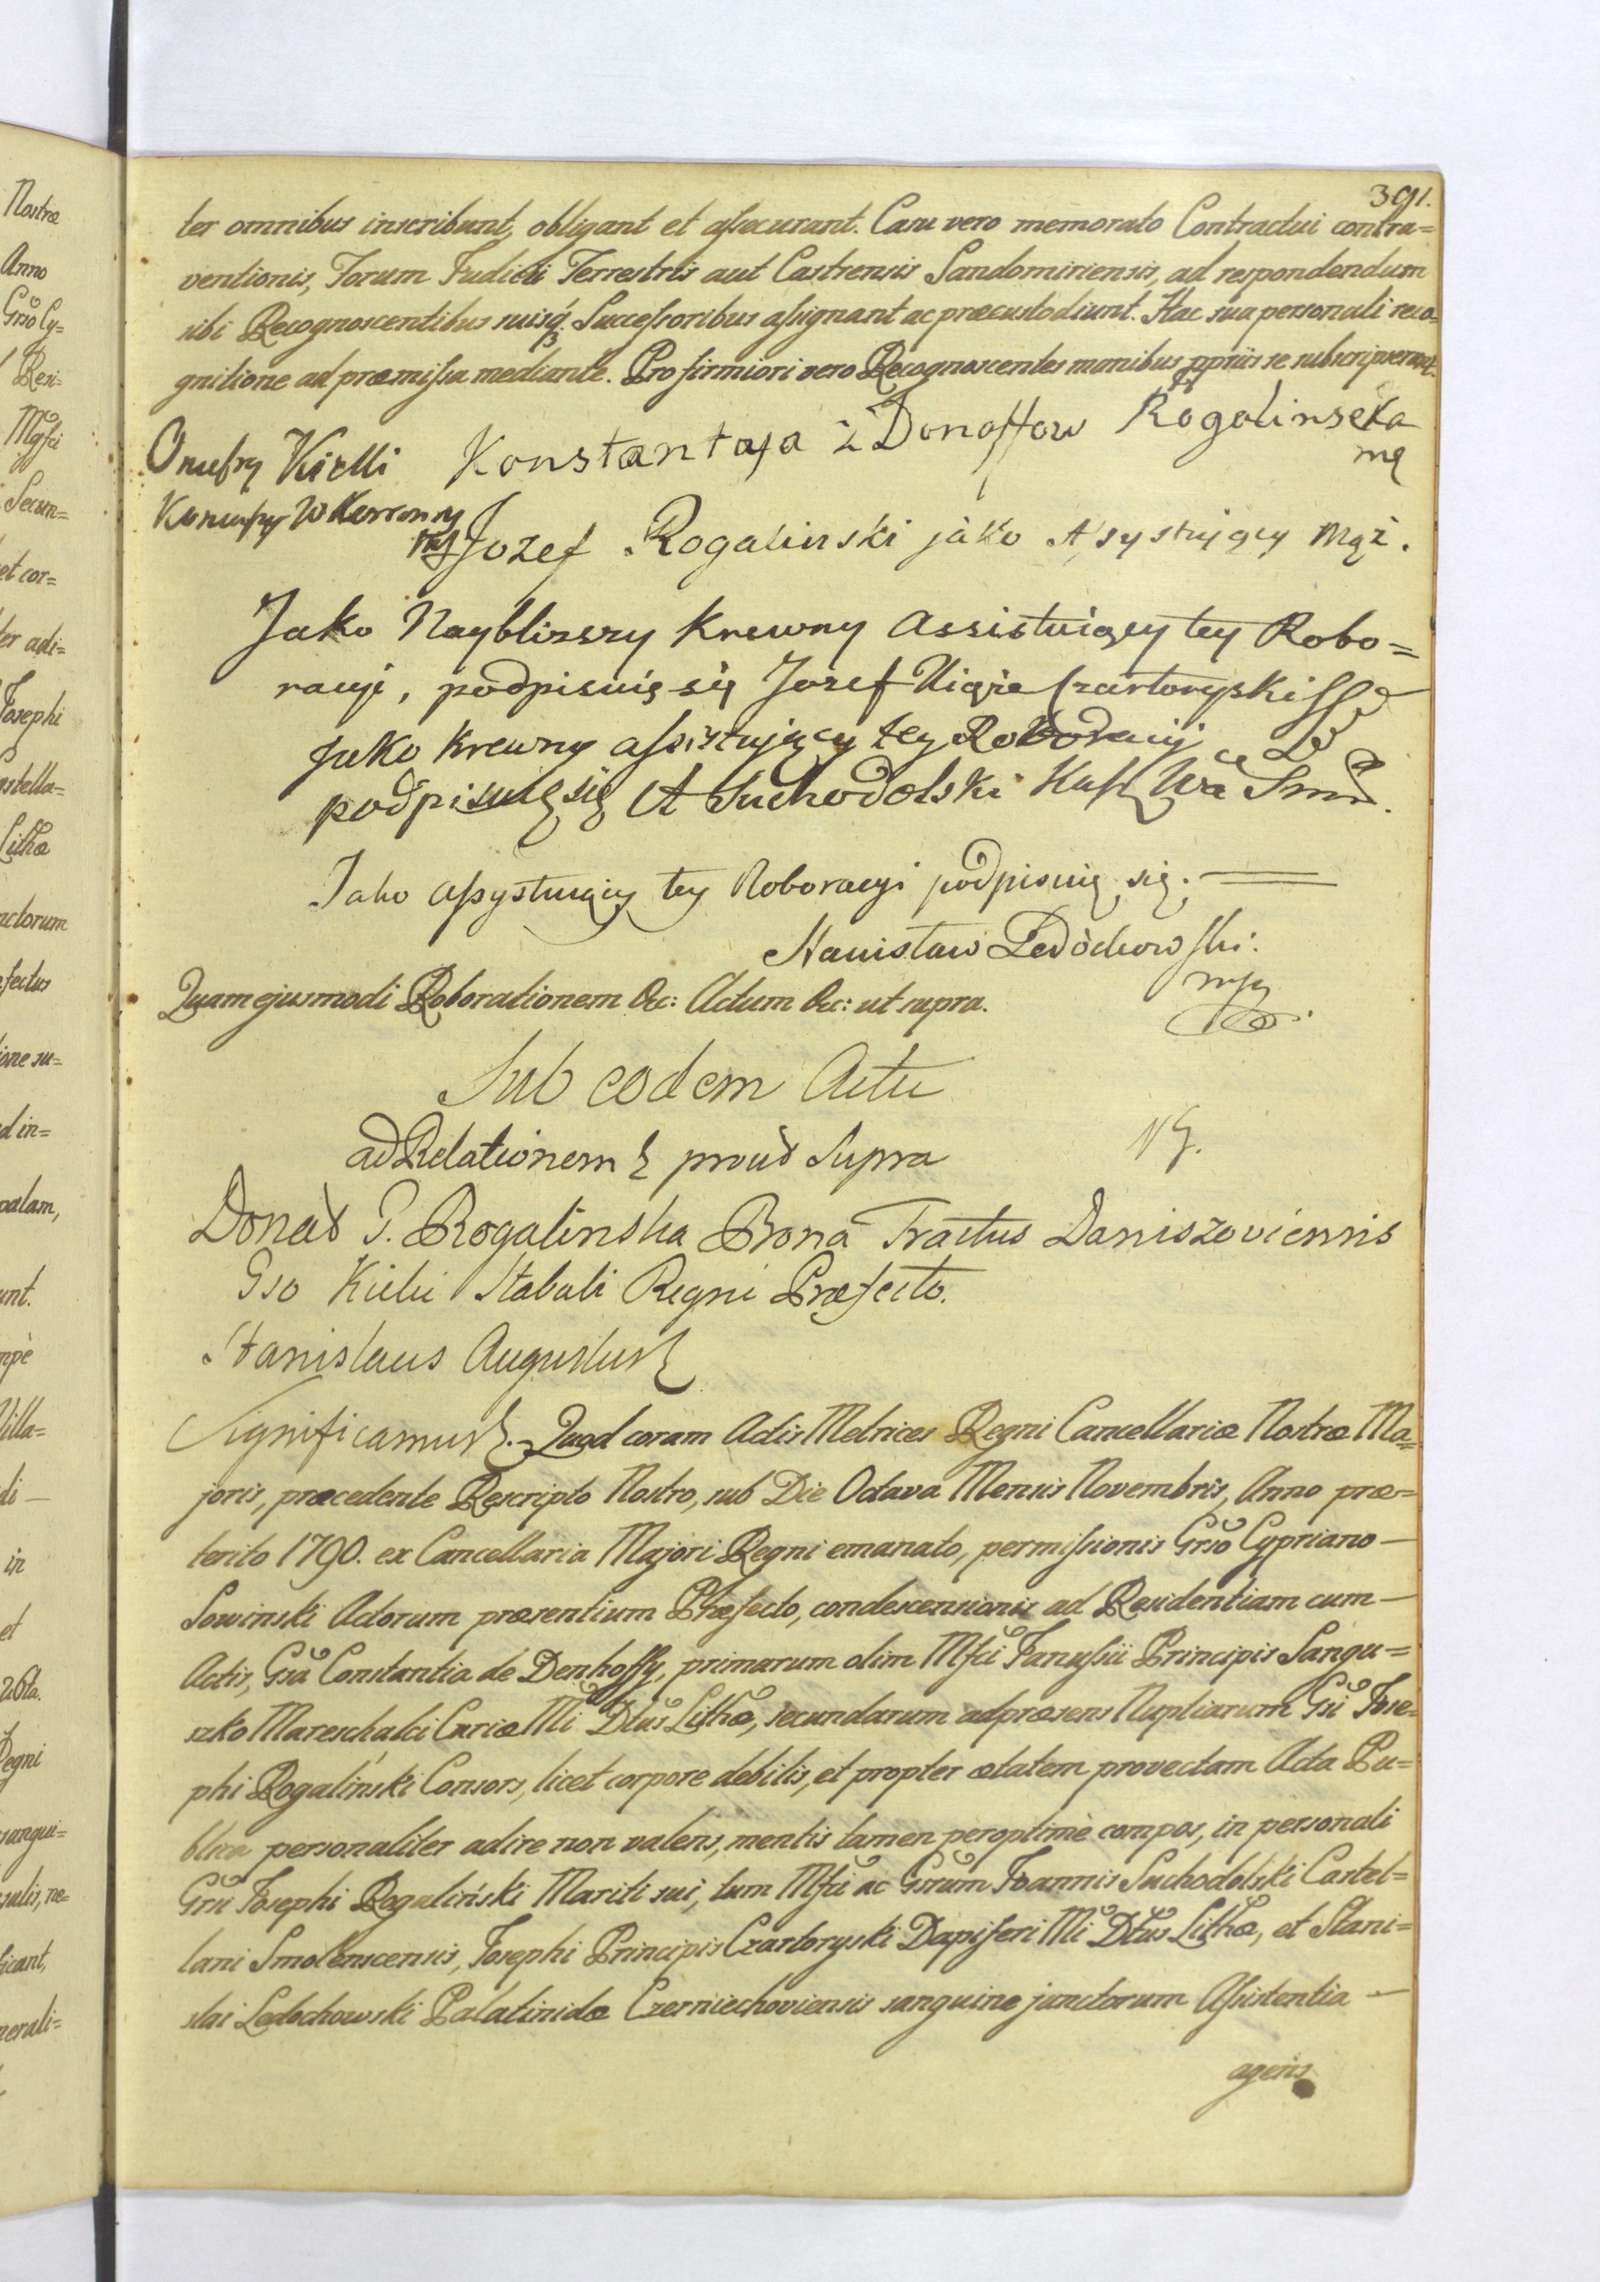 391.
ter omnibus inscribunt, obligant et assecurant. Casu vero memorato Contractui contra=
ventionis, Forum Judicii Terrestris aut Castrensis Sandomiriensis, ad respondendum
sibi Recognoscentibus suisq3. Successoribus assignant ac præcustodiunt. Hac sua personali reco-
gnitione ad præmissa mediante. Pro firmiori vero Recognoscentes manibus ppriis se subscripserunt.
Onufry Kicki Konstantaja z Donoffow Rogolinseka
mą
Koniuszy W Koronny
mp Jozef Rogalinski jako Asystujący Mąż.
Jako Nayblizszy Krewny assistuiący tey Robo=
racyi, podpisuię się Jozef Xiąże Czartoryski
Jako Krewny assistujący tey Roboracyi
podpisuię się A Suchodolski Kasz
Jako assystuiący tey Roboracyi podpisuię się.
Stanisław Ledóchowski.
mp
Quam ejusmodi Roborationem &c: Actum &c: ut supra.
Sub eodem Actu
ad Relationem prout Supra
NG.
Donat G. Rogalinska Bona Tractus Daniszoviensis
Gso Kicki Stabuli Regni Præfecto.
Stanislaus Augustus
Significamus. Quod coram Actis Metrices Regni Cancellariæ Nostræ Ma=
joris, præcedente Rescripto Nostro, sub Die Octava Mensis Novembris, Anno præ=
terito 1790. ex Cancellaria Majori Regni emanato, permissionis Grso Cypriano
Sowinski Actorum præsentium Præfecto, condescensionis ad Residentiam cum
Actis, Gsa Constantia de Denhoffy, primarum olim Mfci Janussii Principis Sangu=
szko Mareschalci Curiæ Mi Dtus Lithæ, secundarum adpræsens Nuptiarum Gsi Jose-
phi Rogaliński Consors, licet corpore debilis, et propter ætatem provectam Acta Pu=
blica personaliter adire non valens, mentis tamen peroptimè compos, in personali
Grsi Josephi Rogaliński Mariti sui, tum Mfci ac Gsrum Joannis Suchodolski Castel=
lani Smolenscensis, Josephi Principis Czartoryski Dapiferi Mi Dtus Lithæ, et Stani=
slai Ledochowski Palatinidæ Czerniechoviensis sanguine junctorum Assistentia
agens